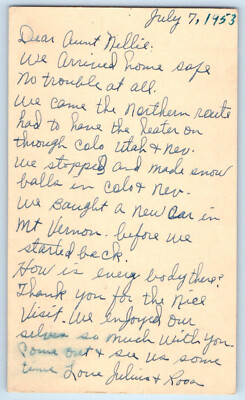 July 7, 1953
Dear Aunt Nellie.
We Arrived home safe
No trouble at all.
We came the Northern route
had to have the heater on
through Colo Utah & Nev.
We stopped and made snow
balls in Colo & Nev.
We baught a new Car in
Mt Vernon. before we
started back.
How is every body there?
Thank you for the Nice
Visit. We enjoyed our
selves so much with you.
Come out & see us some
time Love Julius & Rosa